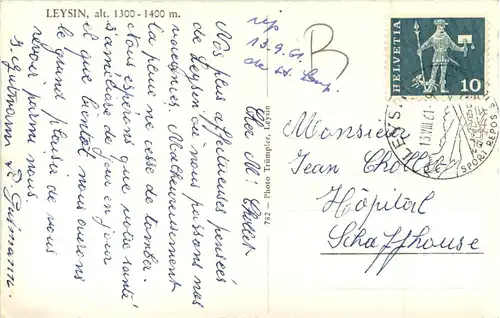 LEYSIN, alt. 1300-1400 m.
Cher M. Chollet
Nos plus affectueuses pensées
de Leysin où nous passons nos
vacances. Malheureusement
la pluie ne cesse de tomber.
Nous espérons que votre santé
s'améliore de jour en jour
et que bientôt nous aurons
le grand plaisir de vous
revoir parmi nous
S. Gutmann
rép
13.9.61
de
B
782 - Photo Trümpler, Leysin
HELVETIA
10
LEYSIN
SPORT REPOS
Monsieur
Jean Chollet
Hôpital
Schaffhouse